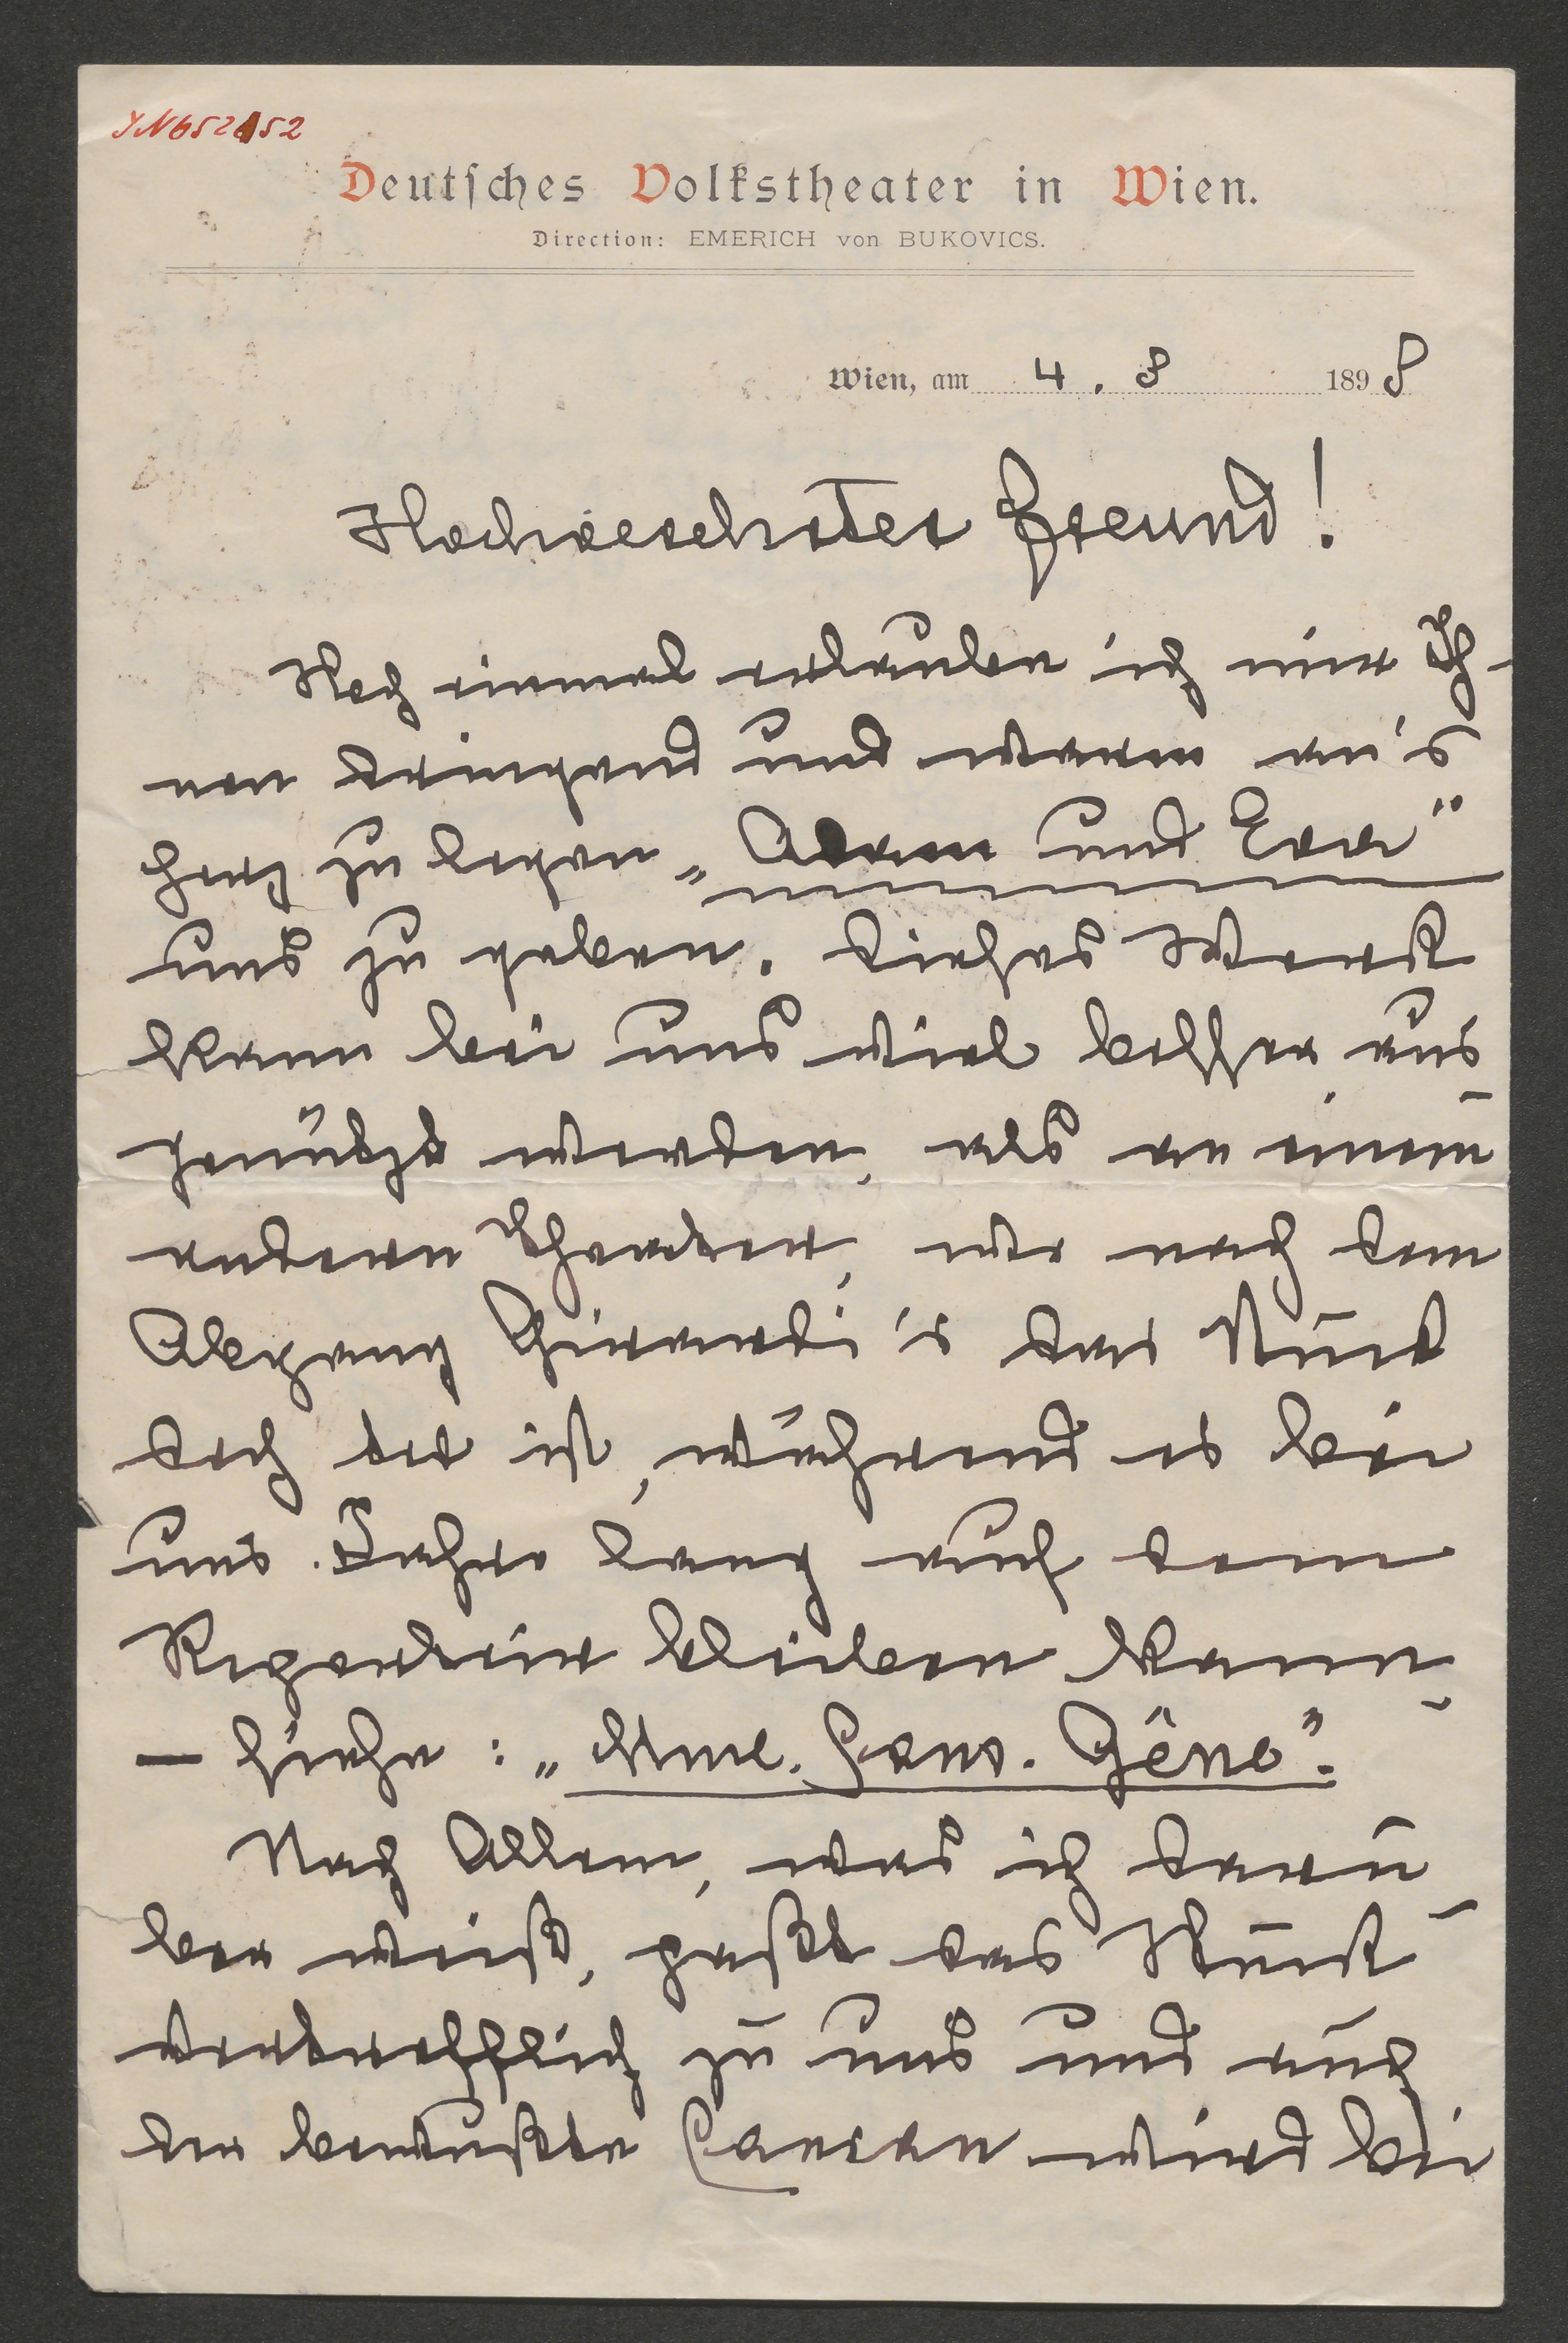 IN652152
Deutsches Volkstheater in Wien.
Direction: EMERICH von BUKOVICS.
Wien, am 4. 8 1898
Hochverehrter Freund!
Noch einmal erlauben ich mir Ih-
nen dringend und warm an's
Herz zu legen „Adam und Eva"
uns zu geben. Dieses Werk
kann bei uns viel besser aus
genützt werden, als an einem
andern Theater, wo nach dem
Abgang Girardi's das Stück
doch tot ist, während es bei
uns Jahre lang auf dem
Repertoir bleiben kann
– siehe: „Mme. Sans. Gêne".
Nach Allem, was ich darü-
ber weiß, paßt das Stück
vortrefflich zu uns und auch
der bewußte Cancan wird bei